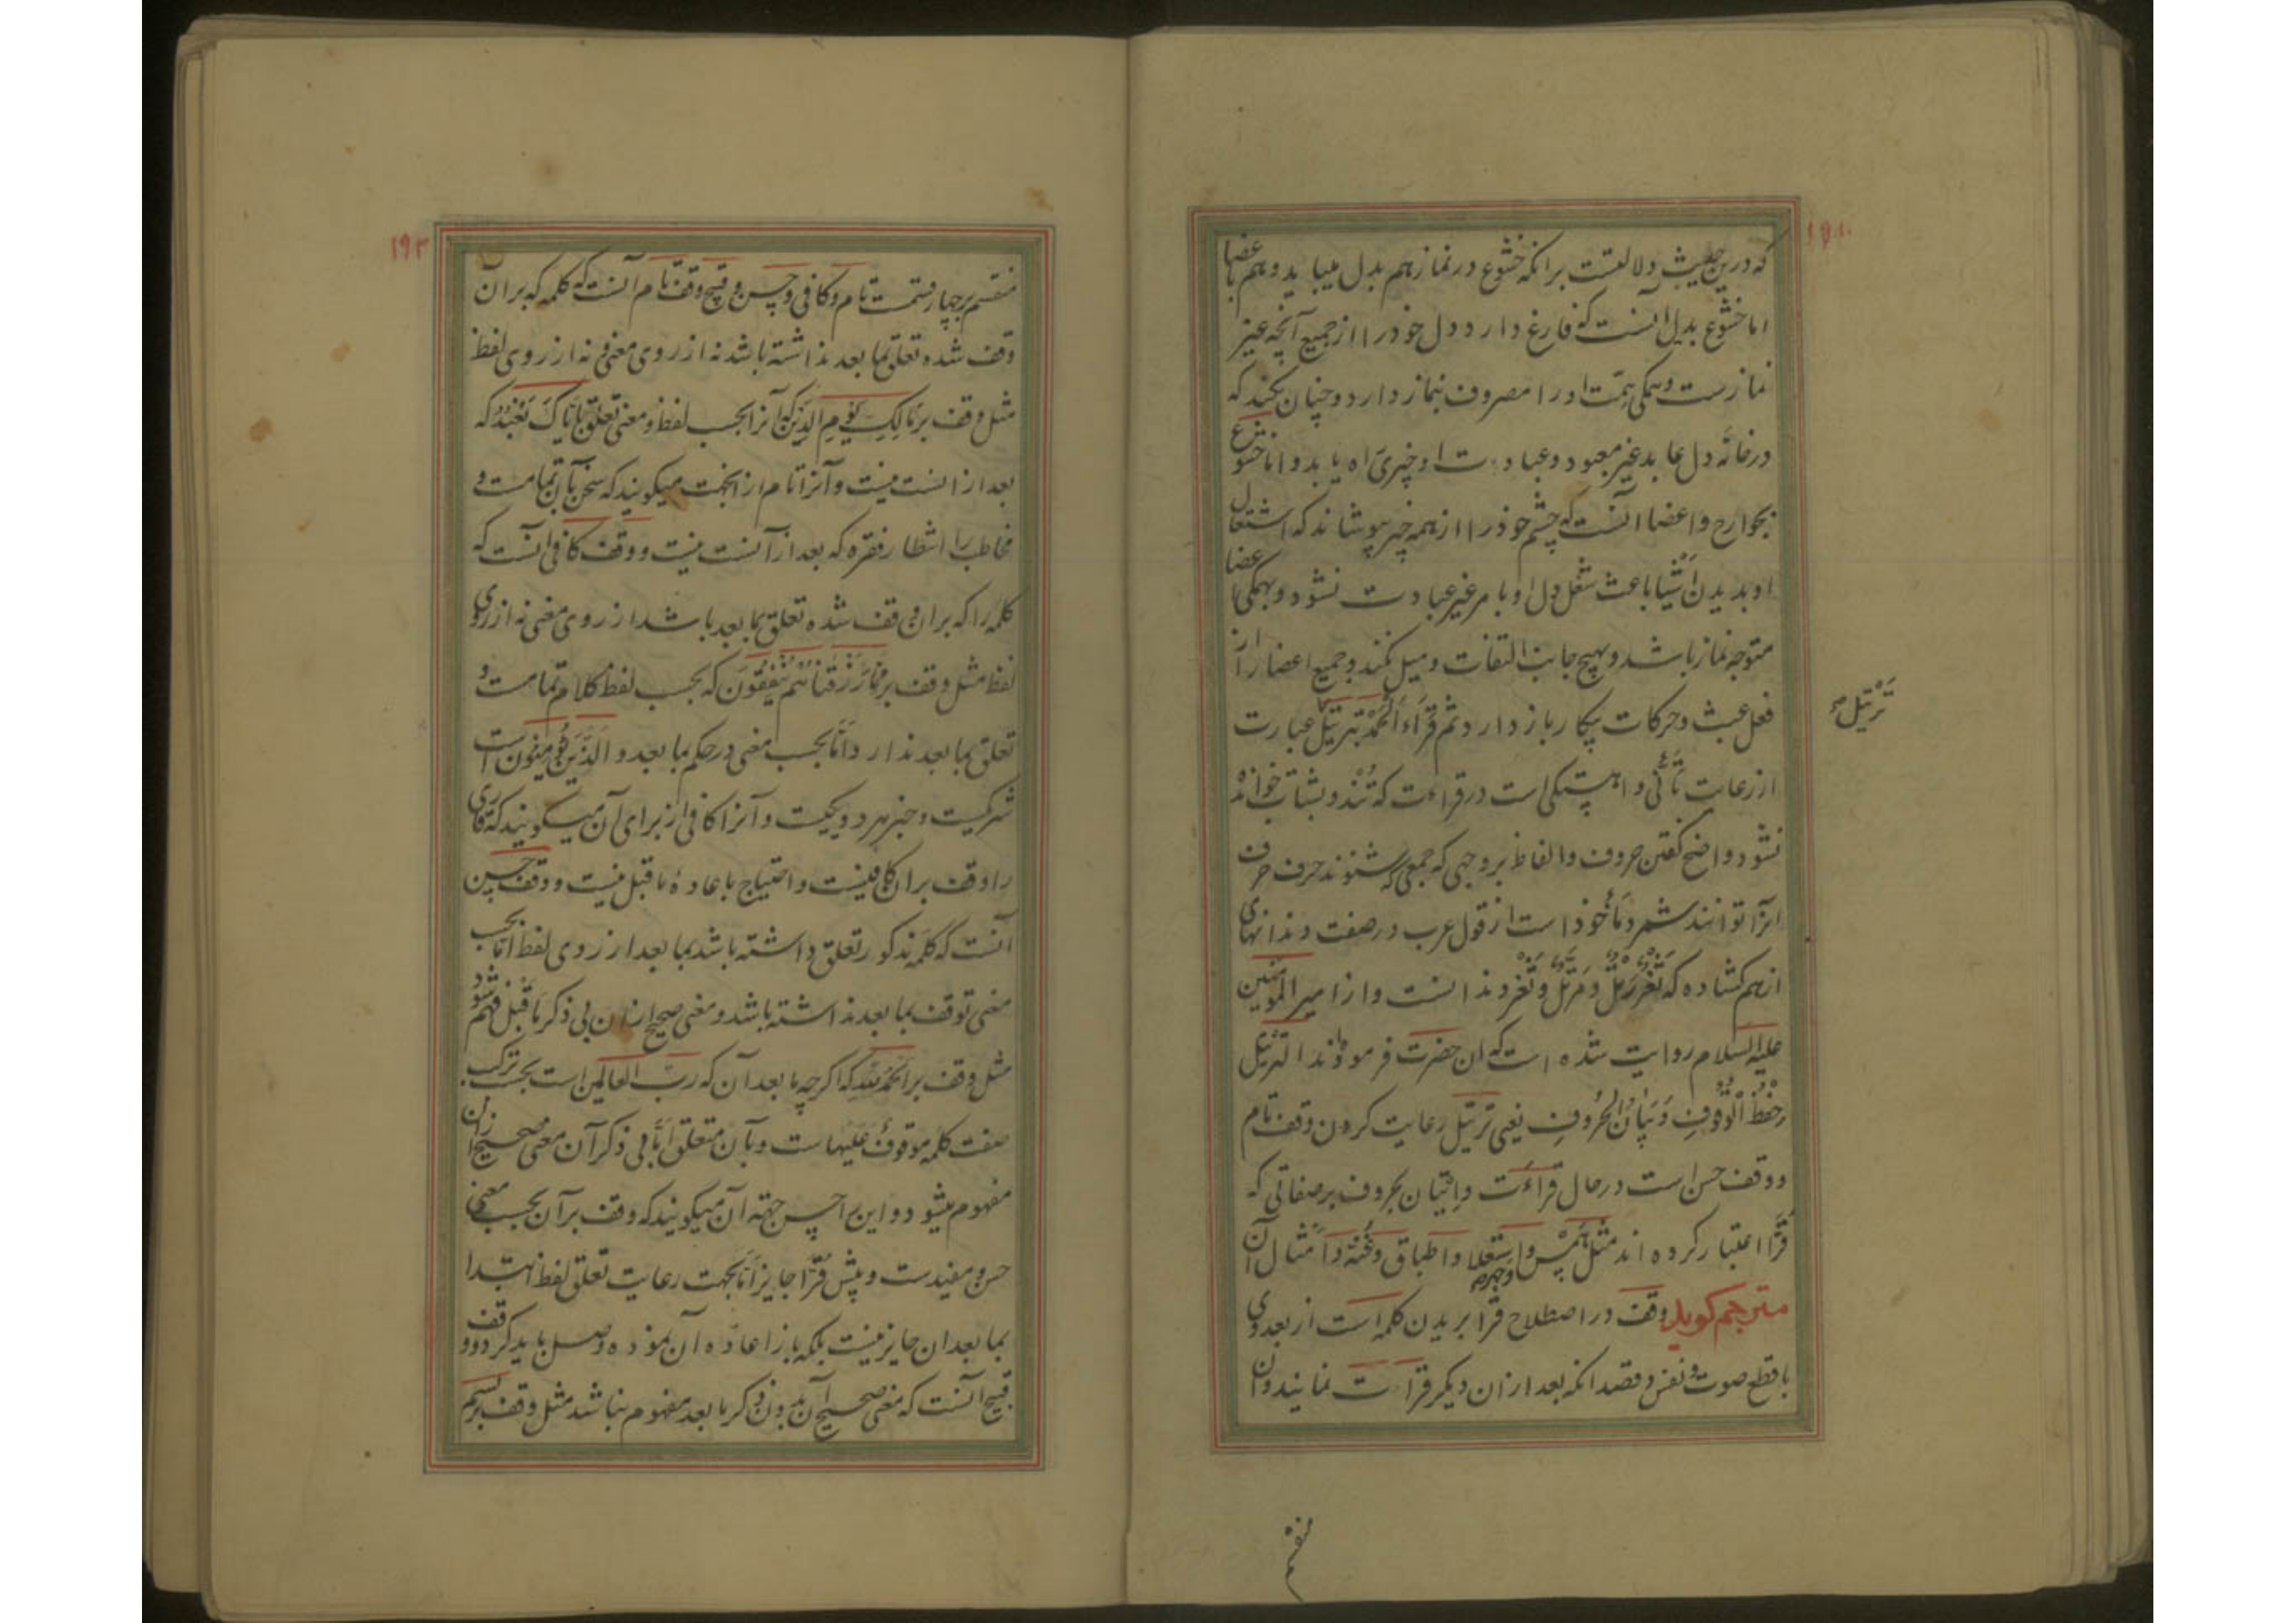 که درین حدیث دلالتست برانکه خشوع در نماز هم بدل میباید و هم باعضا
اما خشوع بدل آنست که فارغ دارد دل خود را از جمیع آنچه غیر
نمازست و همکی همّت او را مصروف بنماز دارد و چنان کند که
در خانهٔ دل عابد غیر معبود و عبادت او چیزی راه یابد و اما خشوع
بجوارح و اعضا آنست که چشم خود را از همه چیز بپوشاند که اشتغال
او بدیدن اشیا باعث شغل دل او بامر غیر عبادت نشود و بهمکی اعضا
متوجه نماز باشد و بهیچ جانب التفات و میل نکند و جمیع اعضا را از
فعل عبث و حرکات بیکار باز دارد ثم قراء الحمد بترتیل عبارت
ترتیل
از رعایت تأنّی و اهستکی است در قراءت که تند و بشتاب خوانده
نشود و واضح کفتن حروف و الفاظ بر وجهی که جمعی که شنوند حرف حرف
انرا توانند شمرد مأخوذ است از قول عرب در صفت دندانهای
از هم کشاده که ثغر رتل و مرتل و ثغر دندانست و از امیر المؤمنین
علیه السلام روایت شده است که ان حضرت فرموده‌اند الترتیل
حِفْظُ الْوُقُوفِ وَبَيَانُ الْحُرُوفِ یعنی ترتیل رعایت کردن وقف تام
و وقف حسن است در حال قراءت و اتیان بحروف بر صفاتی که
قُرّا اعتبار کرده‌اند مثل همس و جهر و استعلا و اطباق و غنّه و امثال آن
مترجم کوید وقف در اصطلاح قرا بریدن کلمه است از بعد وی
با قطع صوت و نفس و قصد انکه بعد از ان دیکر قراءت نمایند و ان
منقسم
۱۹۳
منقسم بر چهار قسمت تام و کافی و حسن و قبیح وقف تام آنست که کلمه که بر آن
وقف شده تعلق بما بعد نداشته باشد نه از روی معنی و نه از روی لفظ
مثل وقف بر مَالِكِ يَوْمِ الدِّينِ که آنرا بحسب لفظ و معنی تعلق بإياك نعبد که
بعد از انست نیست و آنرا تام از انجهت میکویند که سخن بآن تمامست و
مخاطب را انتظار فقره که بعد از آنست نیست و وقف کافی آنست که
کلمه را که بر ان وقف شده تعلق بما بعد باشد از روی معنی نه از روی
لفظ مثل وقف بر مِمَّا رَزَقْنَاهُمْ يُنْفِقُونَ که بحسب لفظ کلام تمامست و
تعلق بما بعد ندارد امّا بحسب معنی در حکم ما بعد و الَّذِينَ يُؤْمِنُونَ است
شریکست و خبر هر دو یکیست و آنرا کافی از برای آن میکویند که قاری
را وقف بر ان کافیست و احتیاج باعادهٔ ما قبل نیست و وقف حسن
آنست که کلمه مذکور تعلق داشته باشد بما بعد از روی لفظ اما بحسب
معنی توقف بما بعد نداشته باشد و معنی صحیح از ان بی ذکر ما قبل فهم شود
مثل وقف بر الحمد لله که اکرچه ما بعد آن که ربّ العالمین است بحسب ترکیب
صفت کلمه موقوف علیهاست و بآن متعلق امّا بی ذکر آن معنی صحیح از ان
مفهوم میشود و این را حسن جهة آن میکویند که وقف بر آن بحسب معنی
حسن و مفیدست و پیش قُرّا جایز امّا بجهت رعایت تعلق لفظ ابتدا
بما بعد ان جایز نیست بلکه باز اعاده آن نموده وصل باید کرد و وقف
قبیح آنست که معنی صحیح آن بدون ذکر ما بعد مفهوم نباشد مثل وقف بر بسم